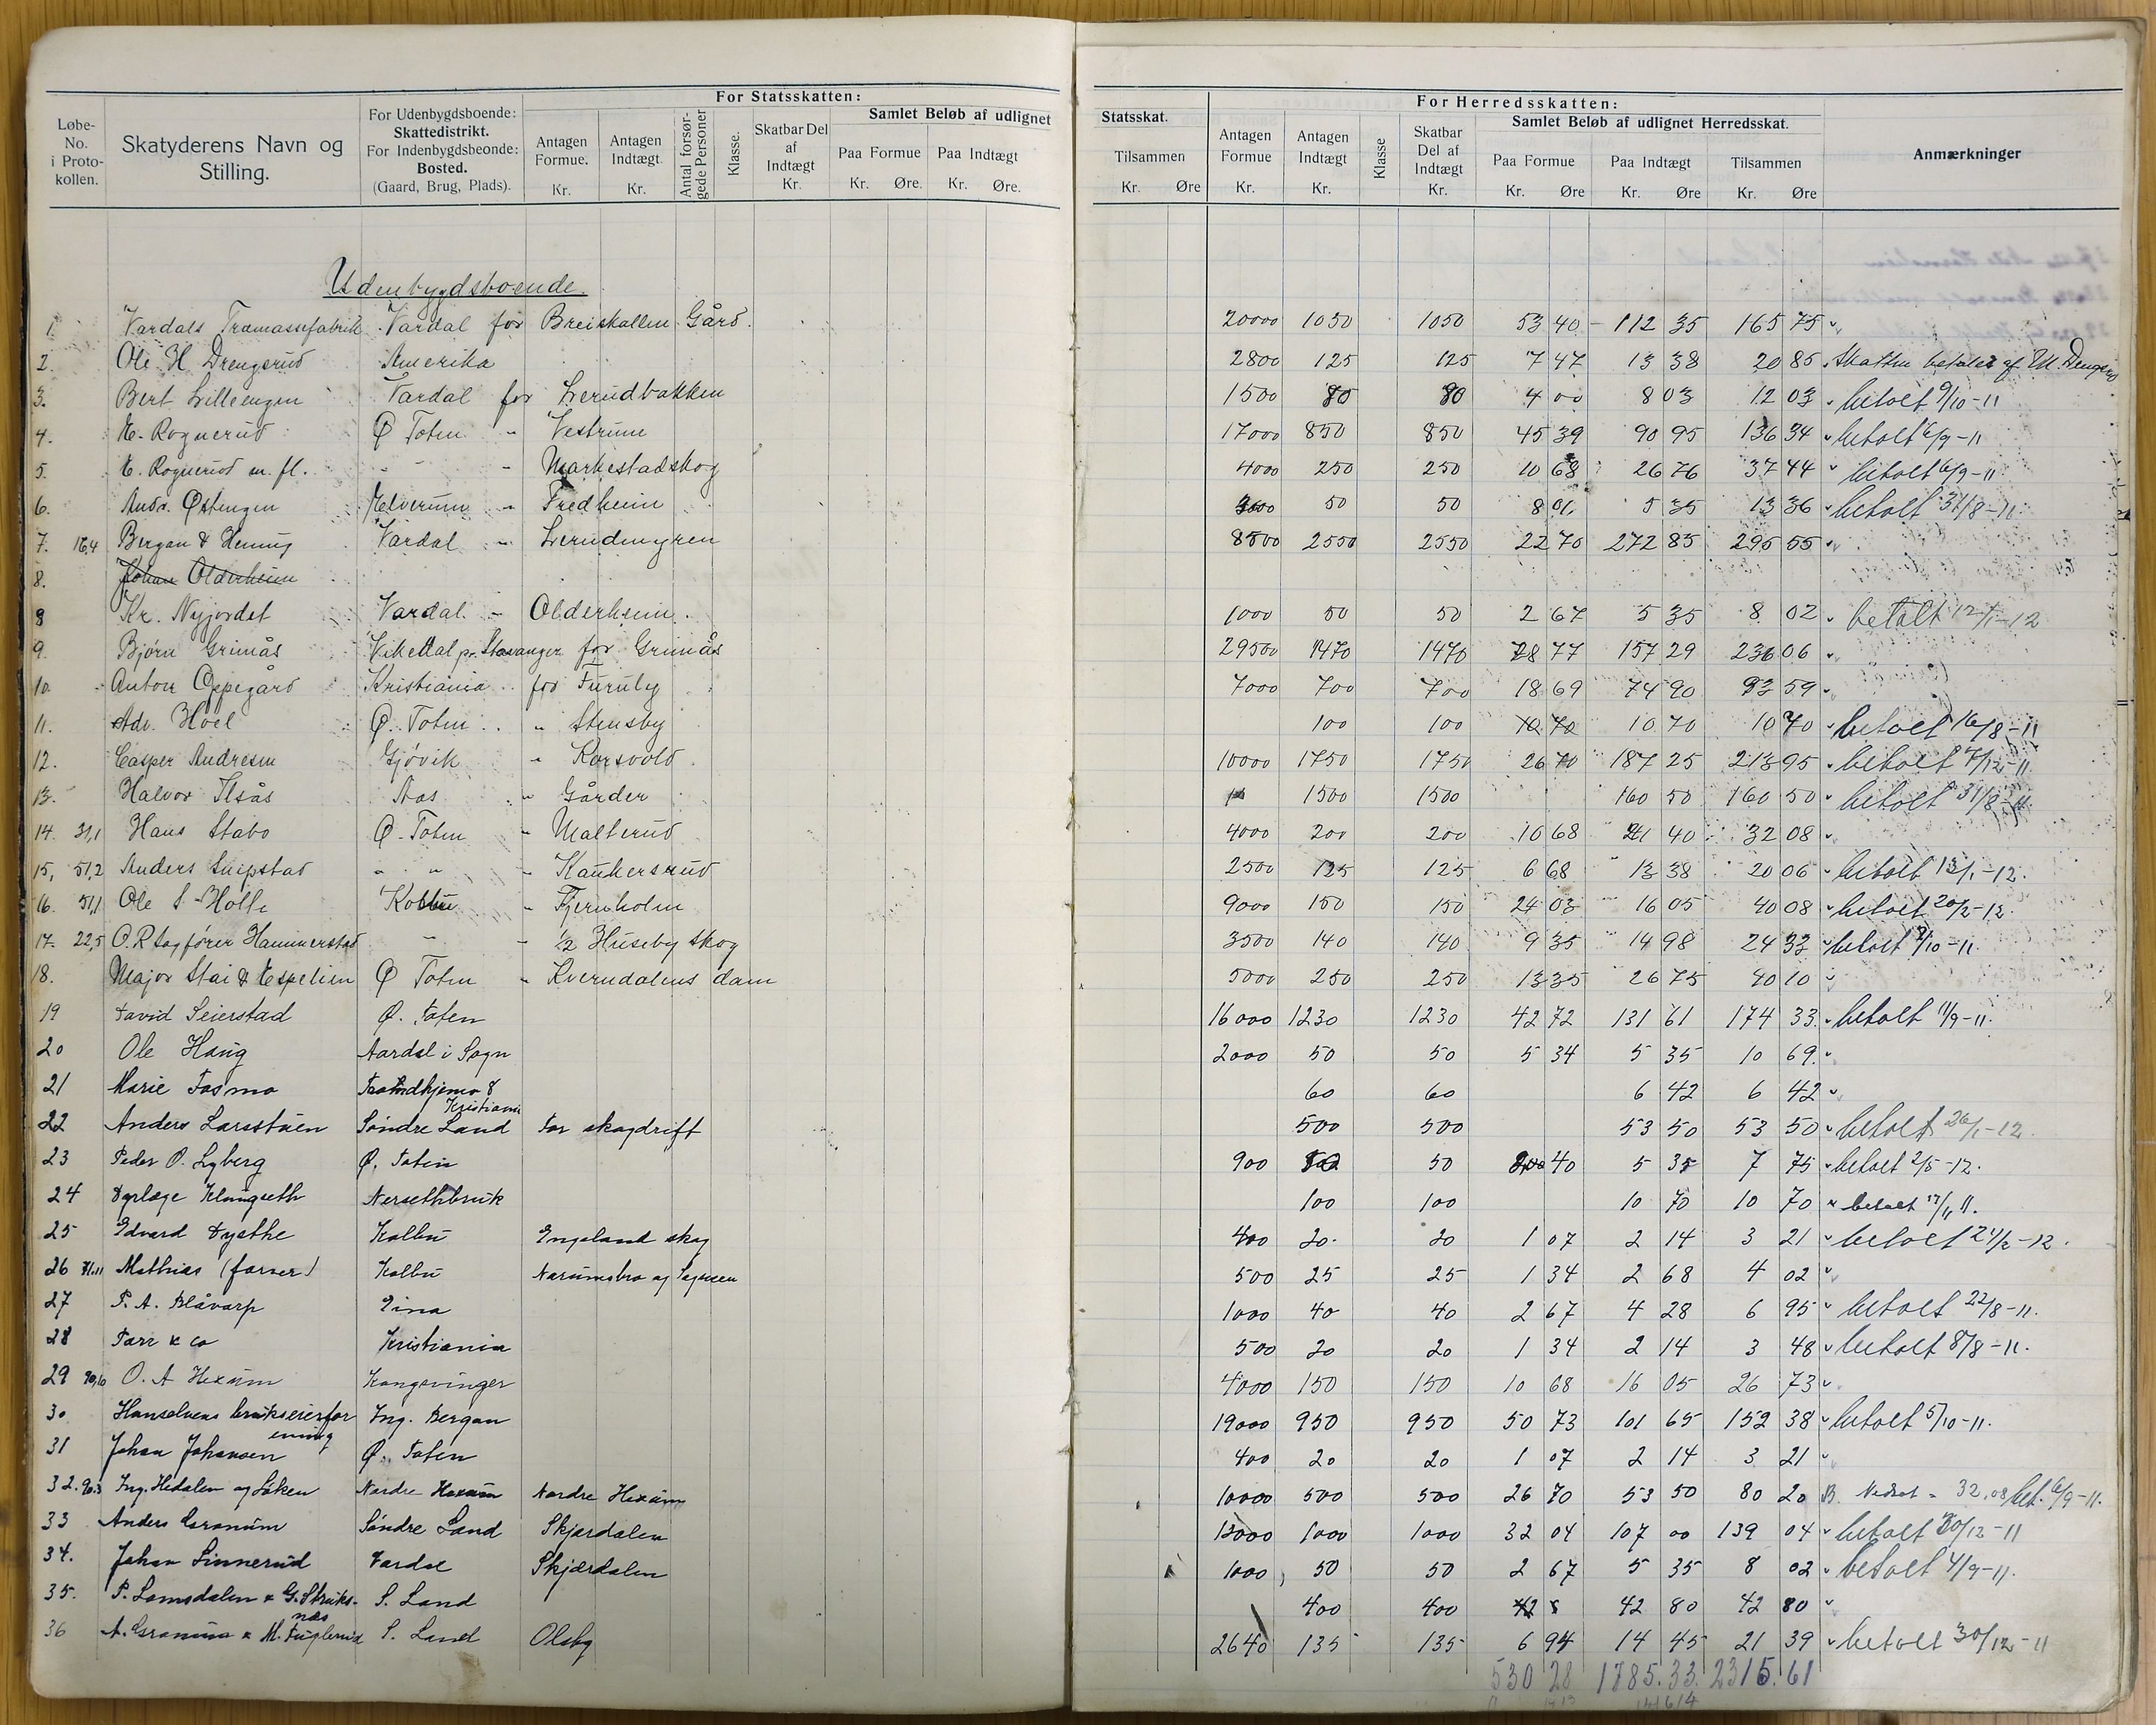 For Statsskatten:
Løbe-No. i Proto-kollen. Skatyderens Navn og Stilling. For Udenbygdsboende: Skattedistrikt. For Indenbygdsbeonde: Bosted. (Gaard, Brug, Plads). Antagen Formue. Kr. Antagen Indtægt. Kr. Antal forsør-gede Personer Klasse. Skatbar Del af Indtægt Kr. Samlet Beløb af udlignet Paa Formue Kr. Øre. Paa Indtægt Kr. Øre.
Statsskat. Tilsammen Kr. Øre
For Herredsskatten:
Antagen Formue Kr. Antagen Indtægt Kr. Klasse Skatbar Del af Indtægt Kr. Samlet Beløb af udlignet Herredsskat. Paa Formue Kr. Øre Paa Indtægt Kr. Øre Tilsammen Kr. Øre Anmærkninger
Udenbygdsboende.
1. Vardals Træmassefabrik Vardal for Breiskallen Gård. 20000 1050 1050 53 40 112 35 165 75
2. Ole H Drengerud Amerika 2800 125 125 7 47 13 38 20 85 Skatten betales af
3. Bert Lilleengen Vardal for Lerudbakken 1500 80 80 4 00 8 03 12 03 betalt 9/10-11
4. E. Rognerud Ø Toten " Vestrum 17000 850 850 45 39 90 95 136 34 betalt 6/9-11
5. E. Rognerud m. fl. " " Markestadskog 4000 250 250 10 68 26 76 37 44 betalt 6/9-11
6. Andr. Østengen Elverum " Fredheim 3000 50 50 8 01 5 35 13 36 betalt 31/8-11
7. 16,4 Bergan & Hennig Vardal " Lerudmyren 8500 2550 2550 22 70 272 85 295 55
8. Johan Olderheim
8 Kr. Nyjordet Vardal " Olderheim. 1000 50 50 2 67 5 35 8 02 betalt 12/1-12
9. Bjørn Grimås Vikedal pr. Stavanger for Grimås 29500 1470 1470 78 77 157 29 236 06
10. Anton Oppegård Kristiania for Furuly 7000 700 700 18 69 74 90 93 59
11. Adv. Hoel Ø. Toten " Stensby 100 100 10 70 10 70 10 70 betalt 16/8-11
12. Casper Andresen Gjøvik " Korsvold 10000 1750 1750 26 70 187 25 213 95 betalt 7/12-11
13. Halvor Ilsås Aas " Gårder 1500 1500 160 50 160 50 betalt 31/8-11
14. 31,1 Hans Stabo Ø. Toten " Malterud 4000 200 200 10 68 21 40 32 08
15, 51,2 Anders Snipstad " " " Kaukersrud 2500 125 125 6 68 13 38 20 06 betalt 13/1-12.
16. 51,1 Ole S. Holte Kolbu " Fjernholm 9000 150 150 24 03 16 05 40 08 betalt 20/2-12.
17. 22,5 O.R Sagfører Hammerstad " " 1/2 Huseby skog 3500 140 140 9 35 14 98 24 33 betalt /10-11.
18. Major Stai & Espelien Ø Toten " Kverndalens dam 5000 250 250 13 35 26 75 40 10
19 David Seierstad Ø. Toten 16000 1230 1230 42 72 131 61 174 33 betalt 11/9-11.
20 Ole Haug Aardal i Sogn 2000 50 50 5 34 5 35 10 69
21 Marie Fosmo Kristiania 60 60 6 42 6 42
22 Anders Larsstuen Søndre Land For skogdrift 500 500 53 50 53 50 betalt 26/1-12
23 Peder O. Lyberg Ø. Toten 900 50 50 2 40 5 35 7 75 betalt 2/5-12.
24 Dyrlæge Klungseth Nersethbruk 100 100 10 70 10 70 betalt 17/11 11.
25 Edvard Dysthe Kolbu Engeland skog 400 20 20 1 07 2 14 3 21 betalt 24/2-12.
26 71.11 Mathias (farver) Kolbu Narumsbro og 500 25 25 1 34 2 68 4 02
27 P. A. Blåvarp Eina 1000 40 40 2 67 4 28 6 95 betalt 22/8-11.
28 Farr & co Kristiania 500 20 20 1 34 2 14 3 48 betalt 8/8-11.
29 90,10 O. A Hexum Kongsvinger 4000 150 150 10 68 16 05 26 73
30 Hunselvens brukseierforening Ing. Bergan 19000 950 950 50 73 101 65 152 38 betalt 5/10-11.
31 Johan Johansen Ø. Toten 400 20 20 1 07 2 14 3 21
32. 90.3 Ing. Hedalen og Løken Nordre Hexum Nordre Hexum 10000 500 500 26 70 53 50 80 20 Nedsat 32.08 bet. 6/9-11.
33 Anders Granum Søndre Land Skjærdalen 12000 1000 1000 32 04 107 00 139 04 betalt 30/12-11
34. Johan Linnerud Vardal Skjærdalen 1000 50 50 2 67 5 35 8 02 betalt 4/9-11.
35. P. Lomsdalen & G. Skruksnæs S. Land 400 400 42 80 42 80
36 A. Granum & M. Fuglerud S. Land Olsby 2640 135 135 6 94 14 45 21 39 betalt 30/12-11
530 28 1785.33. 2315.61